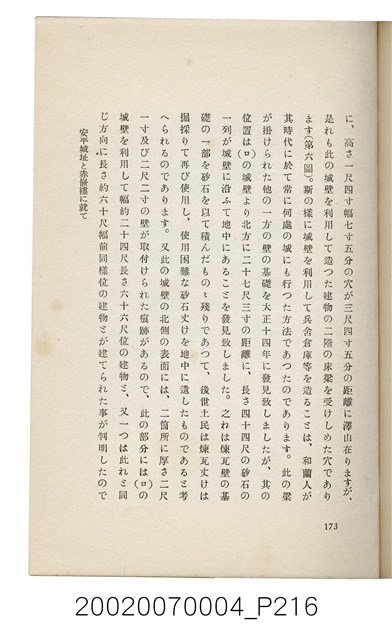 に、高さ一尺四寸幅七寸五分の穴が三尺四寸五分の距離に澤山在りますが、
是れも此の城壁を利用して造つた建物の二階の床梁を受けしめた穴であり
ます(第六圖)。斯の樣に城壁を利用して兵舍倉庫等を造るこㄜは、和蘭人が
其時代に於て常に何處の城にも行つた方法であつたのであります。此の梁
が掛けられた他の一方の壁の基礎を大正十四年に發見致しましたが、其の
位置は(ロ)の城壁より北方に二十七尺三寸の距離に、長さ四十四尺の砂石の
一列が城壁に沿ふて地中にあるこを發見致しました。之れは煉瓦壁の基
礎の一部を砂石を以て積んだものゝ殘りであつて、後世土民は煉瓦丈けは
掘採りて再び使用し、使用困難な砂石丈けを地中に遺したものであると考
へられるのであります。又此の城壁の北側の表面には、二箇所に厚さ二尺
一寸及び二尺二寸の壁が取付けられた痕跡があるので、此の部分には(ロ)の
城壁を利用して幅約二十四尺長さ六十六尺位の建物と、又一つは此れと同
じ方向に長さ約六十尺幅前同樣位の建物とが建てられた事が判明したので
安平城址と赤嵌樓に就て
173
20020070004_P216